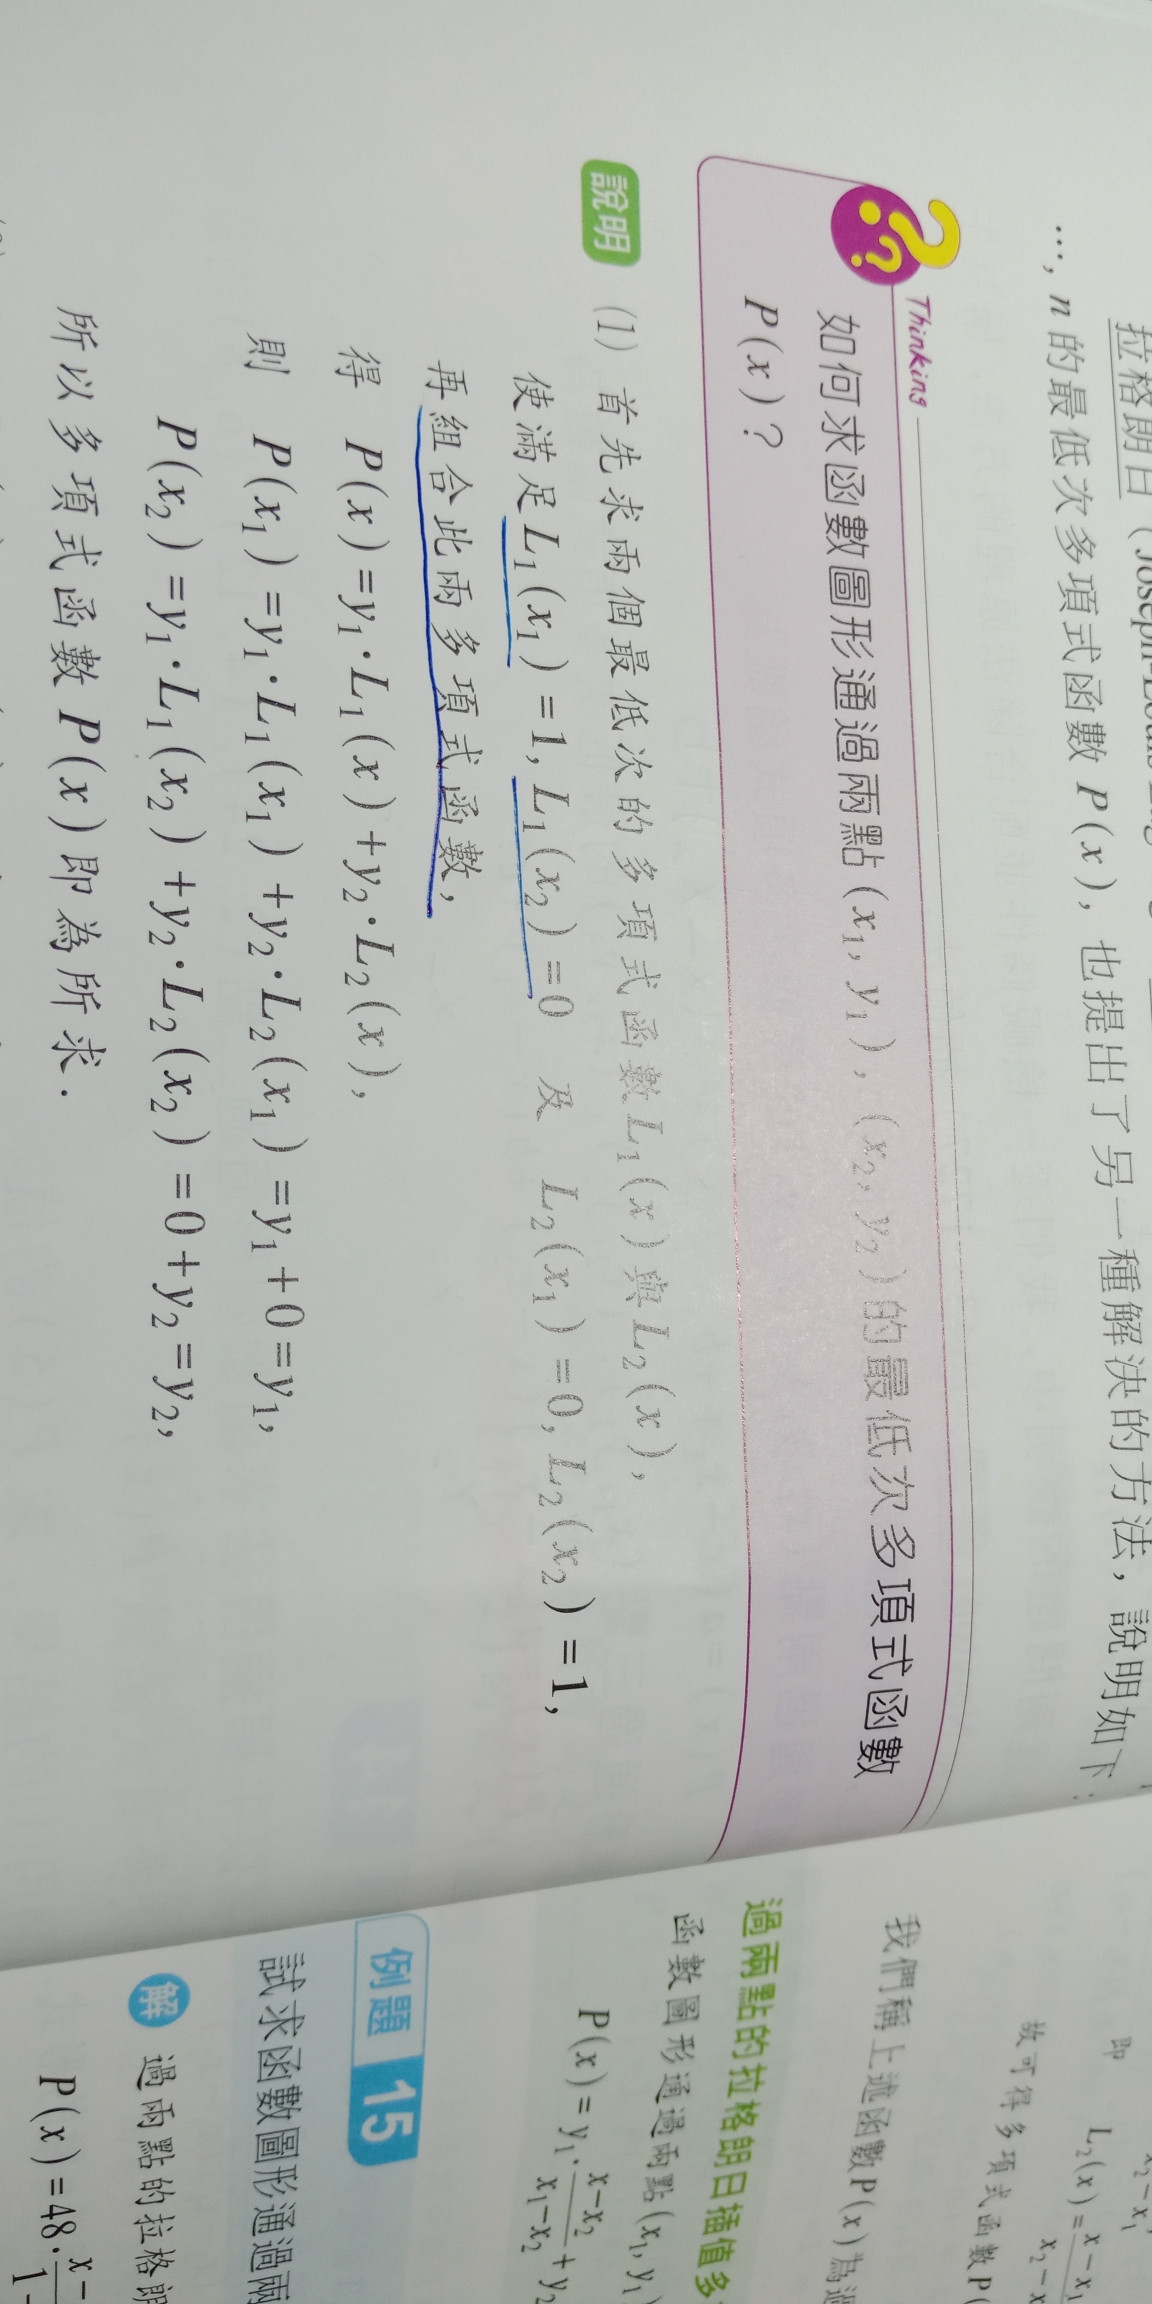 拉格朗日
…, n 的最低次多項式函數 P(x), 也提出了另一種解決的方法, 說明如下:
Thinking
如何求函數圖形通過兩點 (x₁, y₁), (x₂, y₂) 的最低次多項式函數
P(x)?
說明 (1) 首先求兩個最低次的多項式函數 L₁(x) 與 L₂(x),
使滿足 L₁(x₁)=1, L₁(x₂)=0 及 L₂(x₁)=0, L₂(x₂)=1,
再組合此兩多項式函數,
得 P(x)=y₁·L₁(x)+y₂·L₂(x),
則 P(x₁)=y₁·L₁(x₁)+y₂·L₂(x₁)=y₁+0=y₁,
P(x₂)=y₁·L₁(x₂)+y₂·L₂(x₂)=0+y₂=y₂,
所以多項式函數 P(x) 即為所求.
即 L₂(x)=(x-x₁)/(x₂-x
故可得多項式函數 P(
我們稱上述函數 P(x) 為過
過兩點的拉格朗日插值多
函數圖形通過兩點 (x₁, y₁)
P(x)=y₁·(x-x₂)/(x₁-x₂)+y₂
例題 15
試求函數圖形通過兩
解 過兩點的拉格朗
P(x)=48·